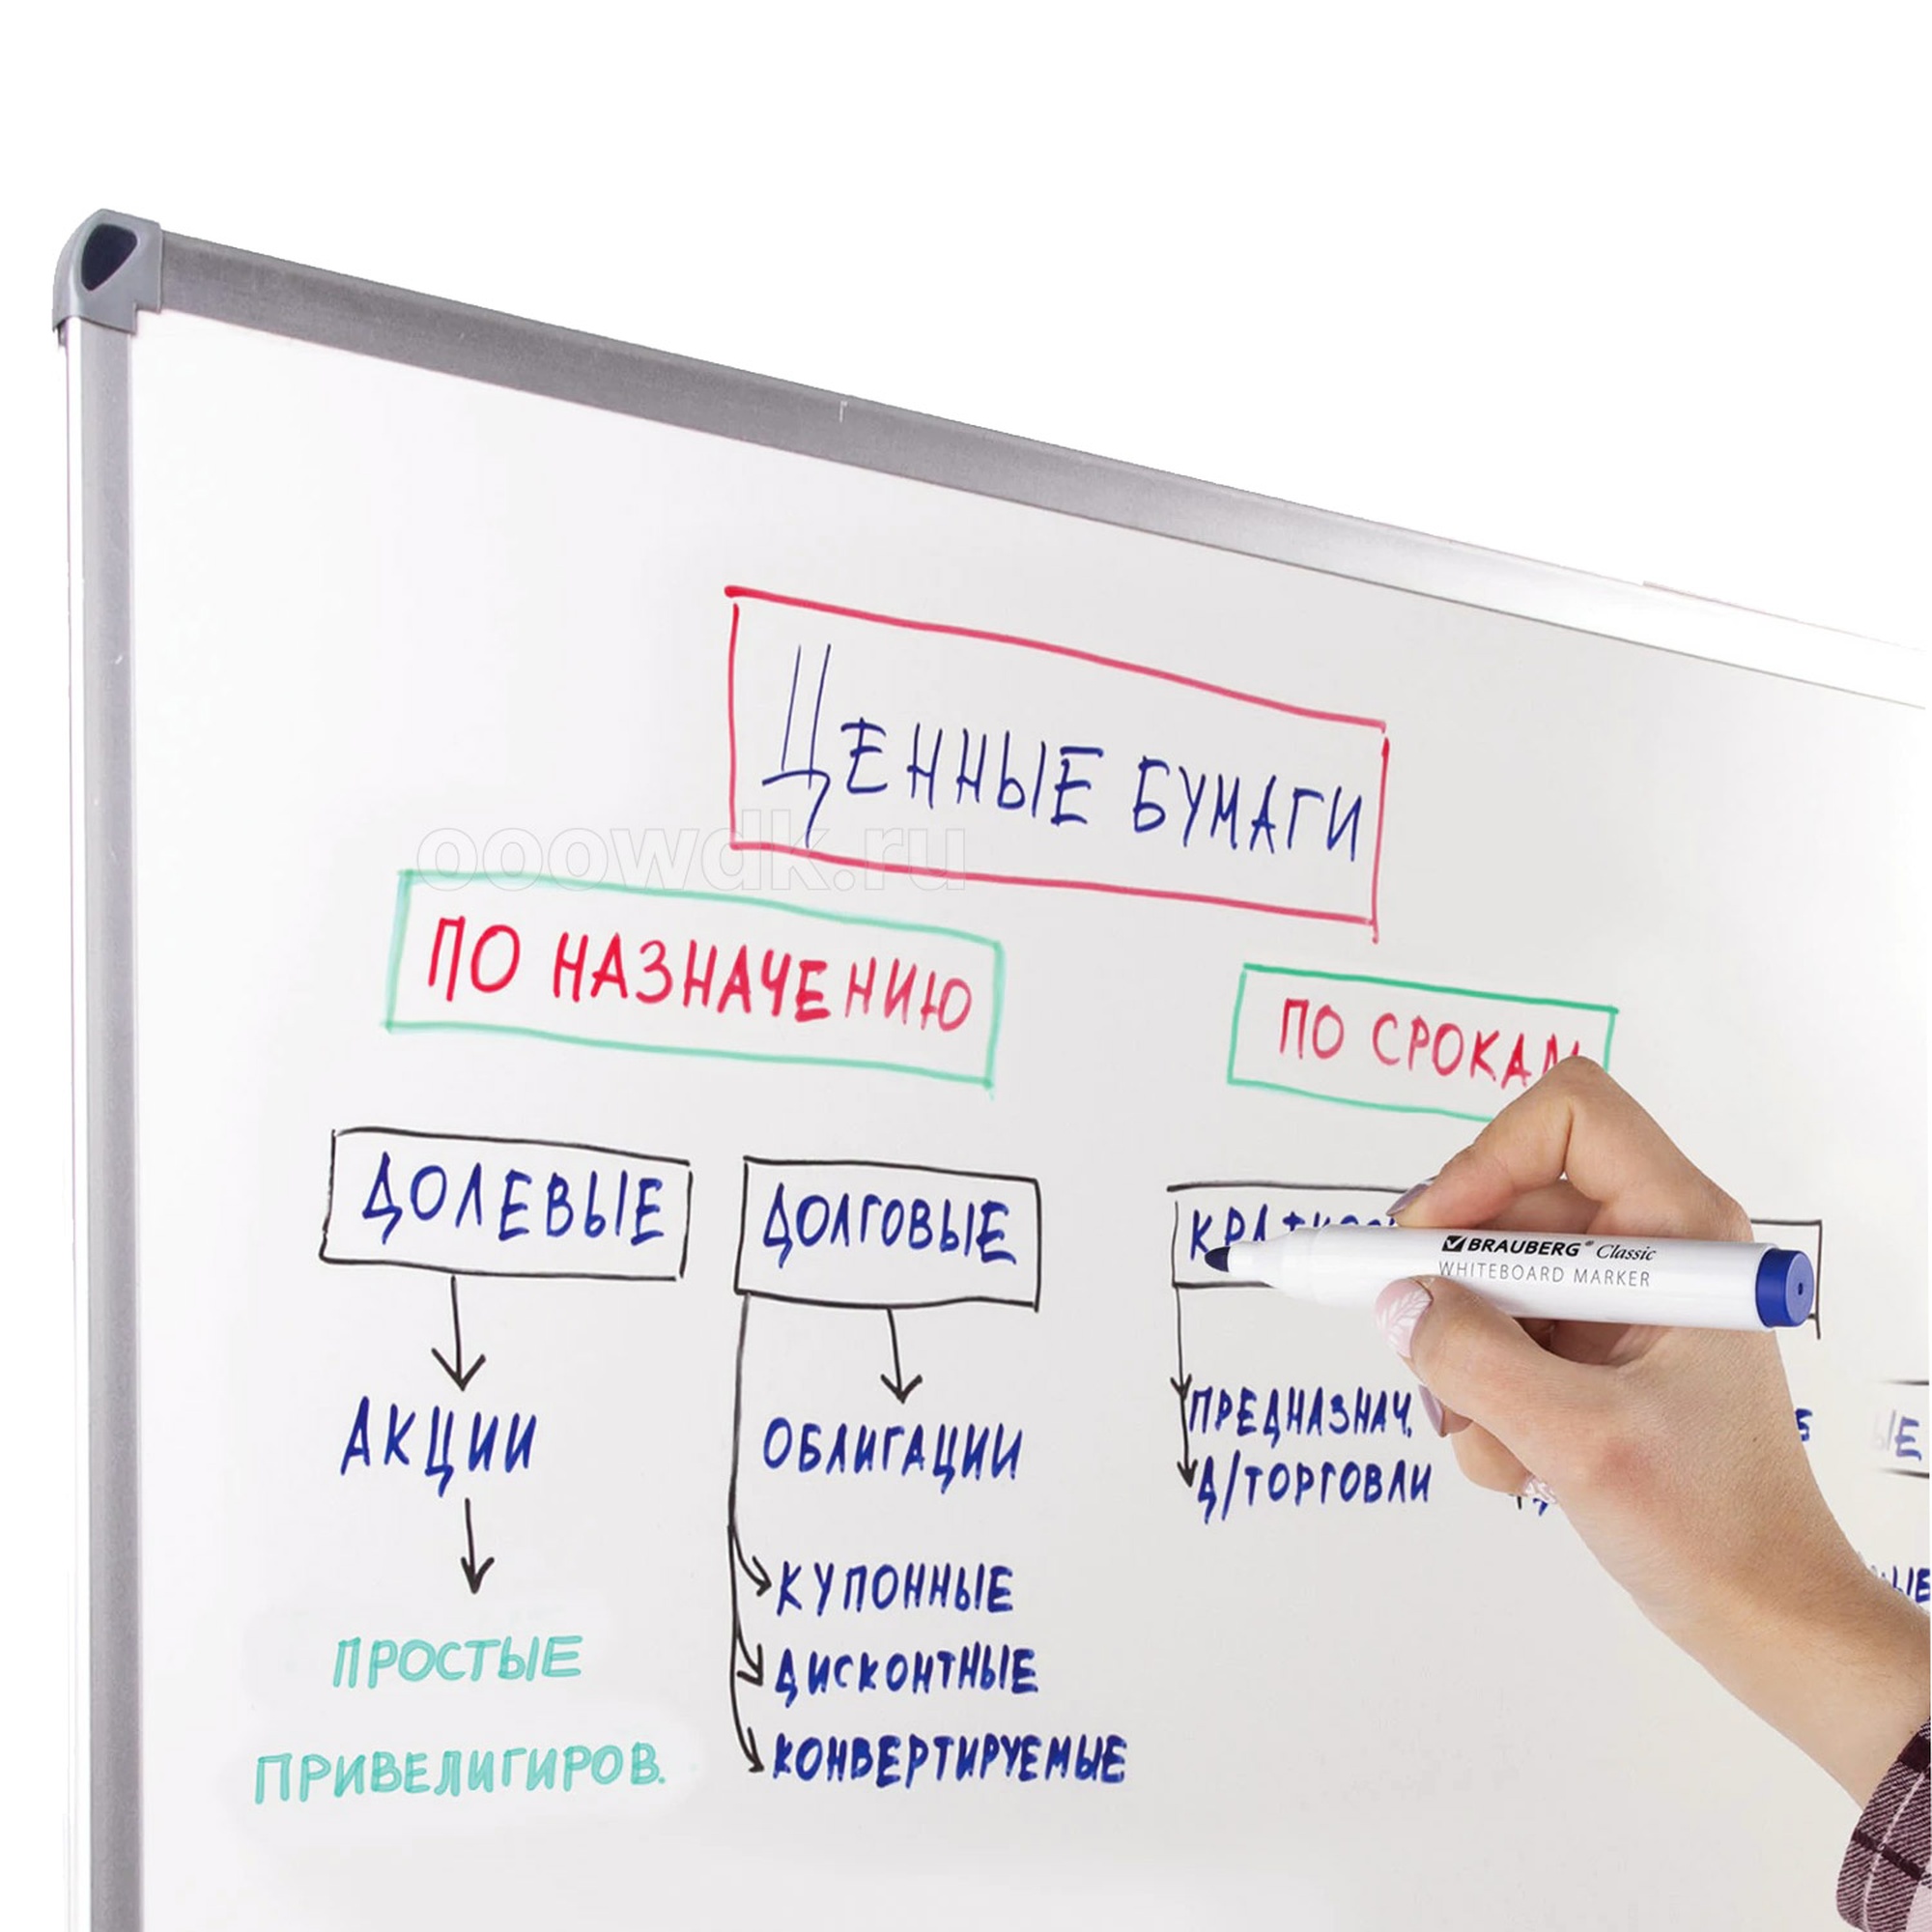 ЦЕННЫЕ БУМАГИ
ooowdk.ru
ПО НАЗНАЧЕНИЮ
ПО СРОКАМ
ДОЛЕВЫЕ
ДОЛГОВЫЕ
BRAUBERG® Classic
WHITEBOARD MARKER
АКЦИИ
ОБЛИГАЦИИ
ПРЕДНАЗНАЧ.
Д/ТОРГОВЛИ
КУПОННЫЕ
ПРОСТЫЕ
ДИСКОНТНЫЕ
ПРИВЕЛИГИРОВ.
КОНВЕРТИРУЕМЫЕ